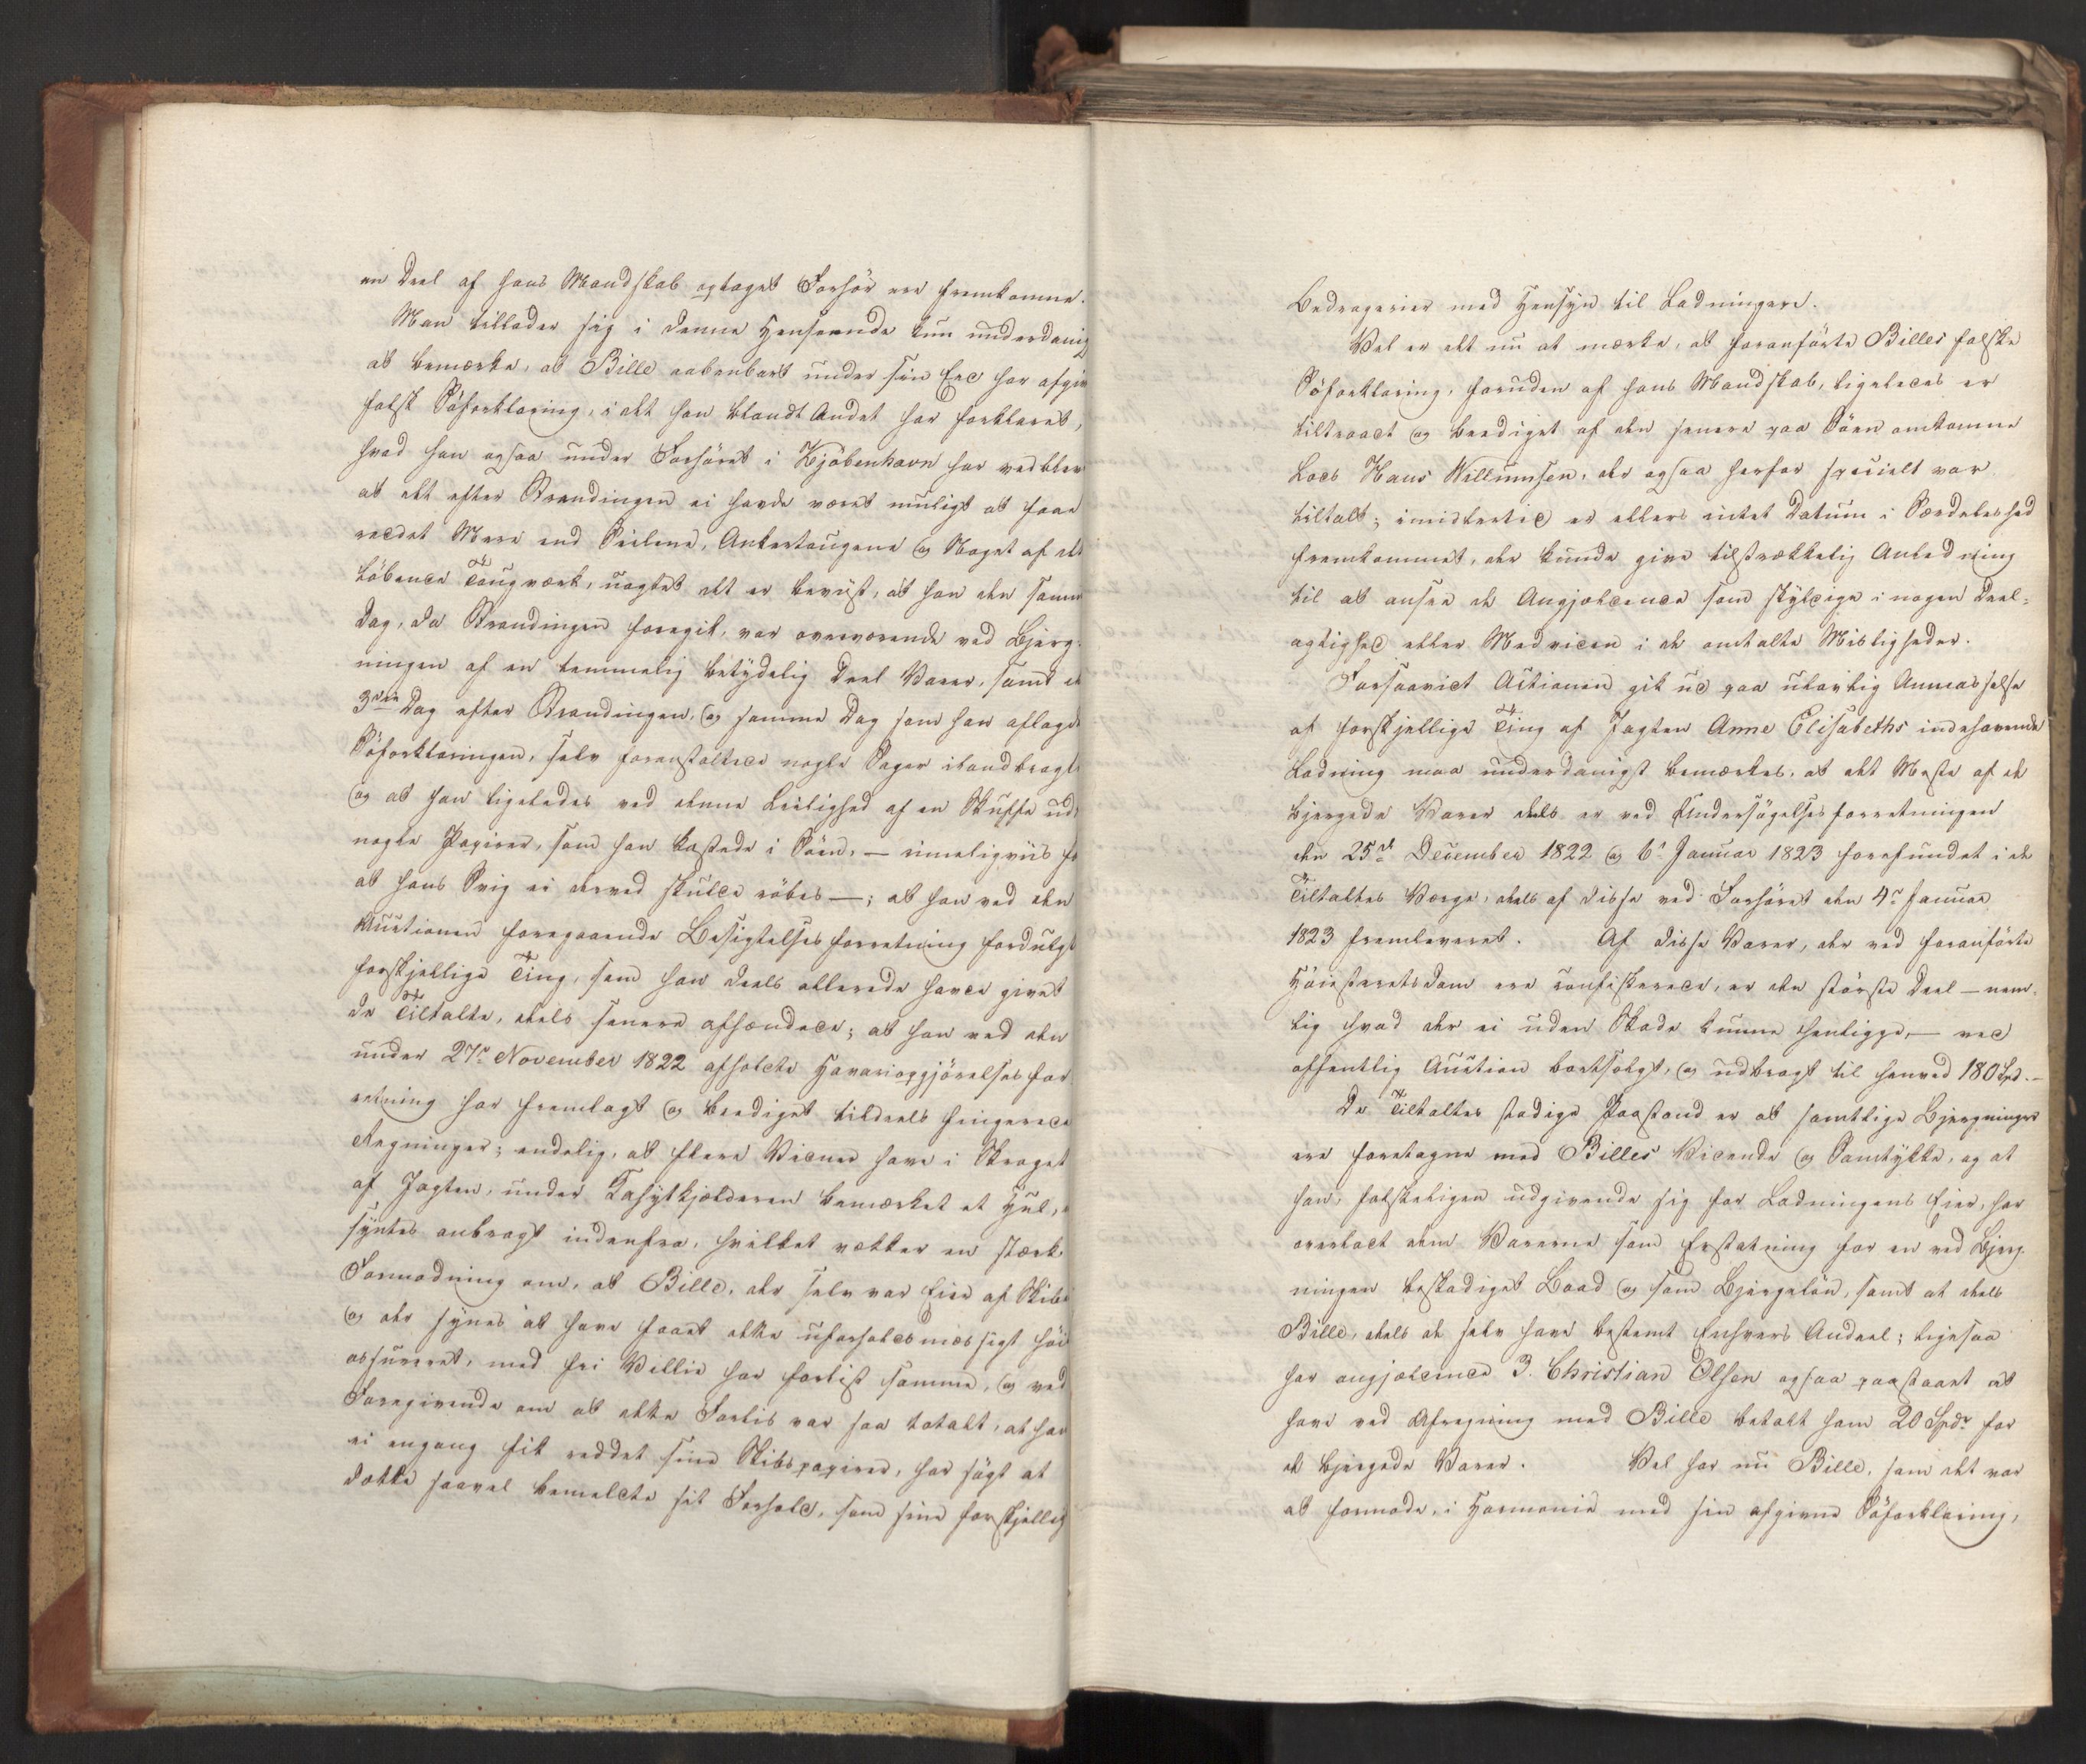 en Deel af hans Mandskab optaget Forhör ere fremkomne.
Man tillader sig i denne Henseende kun underdanig
at bemærke, at Bille aabenbart under sin Eed har afgiv
falsk Söforklaring, i det han blandt Andet har forklaret,
hvad han ogsaa under Forhöret i Kjöbenhavn har vedblev
at det efter Strandingen ei havde været muligt at faae
reddet Mere end Seilene, Ankertougene og Noget af det
löbende Tougværk, uagtet det er beviist, at han den samme
Dag, da Strandingen foregik, var overværende ved Bjerg-
ningen af en temmelig betydelig Deel Varer, samt et
3die Dag efter Strandingen, og samme Dag som han aflagde
Söforklaringen, selv foranstaltede nogle Sager ilandbragt
og at han ligeledes ved denne Leilighed af en Skuffe ud-
nogle Papirer, som han kastede i Söen, — rimeligviis for
at hans Svig ei derved skulde röbes —; at han ved den
Auctionen foregaaende Besigtelsesforretning fordulgte
forskjellige Ting, som han deels allerede havde givet
de Tiltalte, deels senere afhændede; at han ved den
under 27de November 1822 afholdte Havariopgjörelsesfor-
retning har fremlagt og beediget tildeels fingerede
Regninger; endelig, at flere Vidner have i Skroget
af Jagten, under Kahytkjelderen bemærket et Hul,
syntes anbragt indenfra, hvilket vækker en stærk
Formodning om, at Bille, der selv var Eier af Skibet
og der synes at have faaet dette uforholdsmæssigt höit
assureret, med fri Villie har forlist samme, og ved
Foregivende om at dette Forlis var saa totalt, at han
ei engang fik reddet sine Skibspapirer, har sögt at
dække saavel bemeldte sit Forhold, som sine forskjellig
Bedragerier med Hensyn til Ladningen.
Vel er det nu at mærke, at foranförte Billes falske
Söforklaring, foruden af hans Mandskab, ligeledes er
tiltraadt og beediget af den senere paa Söen omkomne
Lods Hans Willumsen, der ogsaa herfor specielt var
tiltalt; imidlertid er ellers intet Datum i Særdeleshed
fremkommet, der kunde give tilstrækkelig Anledning
til at ansee de Angjeldende som skyldige i nogen Deel-
agtighed eller Medviden i de omtalte Misligheder.
Forsaavidt Actionen gik ud paa ulovlig Annammelse
af forskjellige Ting af Jagten Anne Elisabeths indehavende
Ladning maa underdanigst bemærkes, at det Meste af de
bjergede Varer deels er ved Undersögelsesforretningen
den 25de December 1822 og 6te Januar 1823 forefundet i de
Tiltaltes Værge, deels af disse ved Forhöret den 4de Januar
1823 fremleveret. Af disse Varer, der ved foranförte
Höiesteretsdom ere confiskerede, er den störste Deel — nem-
lig hvad der ei uden Skade kunne henligge, — ved
offentlig Auction bortsolgt, og udbragt til henved 180 Spd. —
De Tiltaltes stadige Paastand er at samtlige Bjergninger
ere foretagne med Billes Vidende og Samtykke, og at
han, falskeligen udgivende sig for Ladningens Eier, har
overladt dem Varerne som Erstatning for en ved Bjerg-
ningen beskadiget Baad og som Bjergelön, samt at deels
Bille, deels de selv have bestemt Enhvers Andeel; ligesaa
har angjeldende 3. Christian Olsen ogsaa paastaaet at
have ved Afregning med Bille betalt ham 20 Spdr for
de bjergede Varer. Vel har nu Bille, som det var
at formode, i Harmonie med sin afgivne Söforklaring,